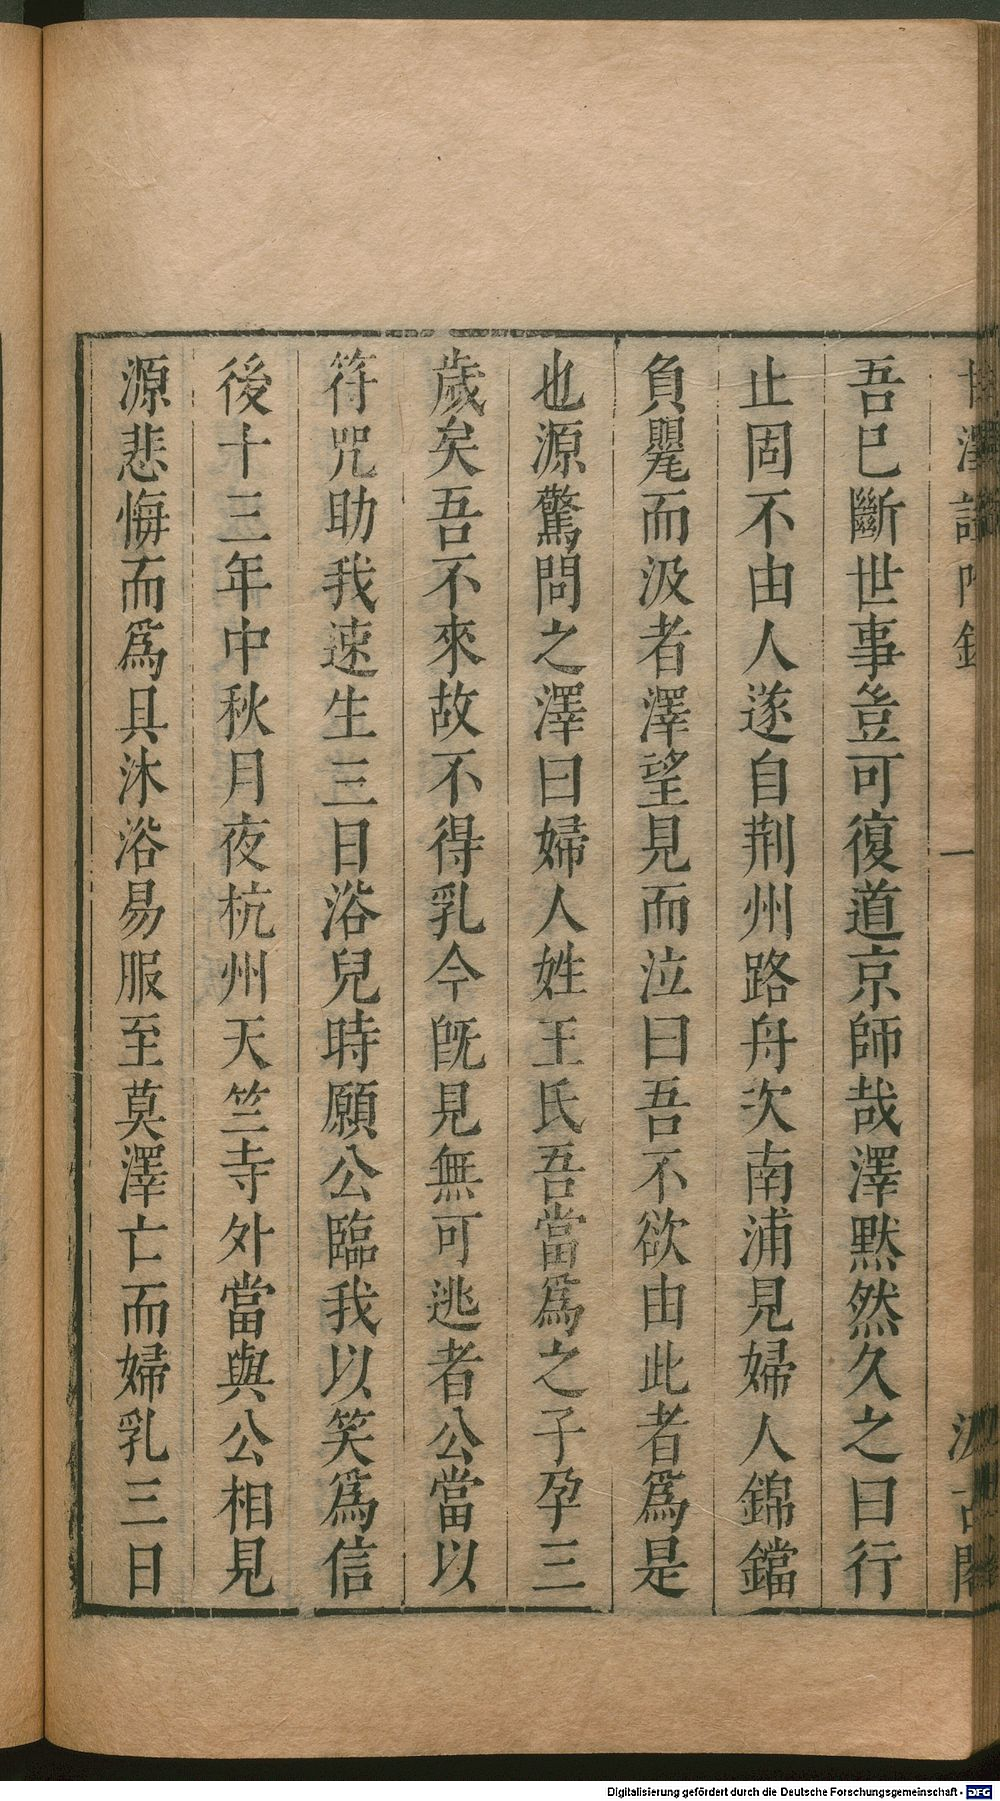 甘澤謠附錄 一 汲古閣
吾已斷世事豈可復道京師哉澤黙然久之曰行
止固不由人遂自荆州路舟次南浦見婦人錦鐺
負甖而汲者澤望見而泣曰吾不欲由此者爲是
也源驚問之澤曰婦人姓王氏吾當爲之子孕三
歲矣吾不來故不得乳今旣見無可逃者公當以
符咒助我速生三日浴兒時願公臨我以笑爲信
後十三年中秋月夜杭州天竺寺外當與公相見
源悲悔而爲具沐浴易服至莫澤亡而婦乳三日
Digitalisierung gefördert durch die Deutsche Forschungsgemeinschaft - DFG